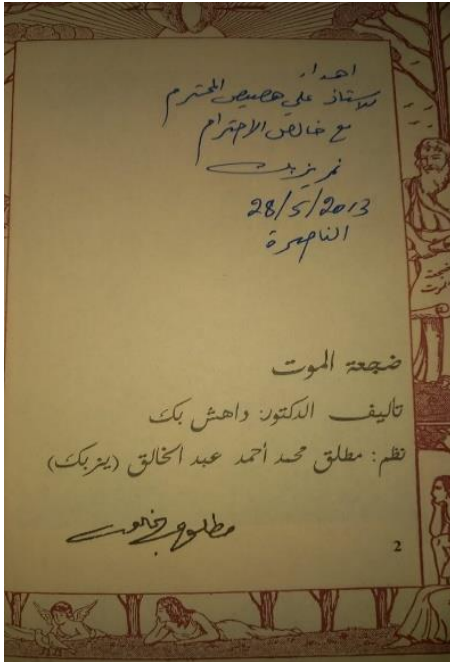 اهداء
للاستاذ علي هصيص المحترم
مع خالص الاحترام
نمر يزبك
28/5/2013
الناصرة
ضجعة
الموت
ضجعة الموت
تأليف الدكتور: داهش بك
نظم: مطلق محمد أحمد عبد الخالق (يزبك)
2